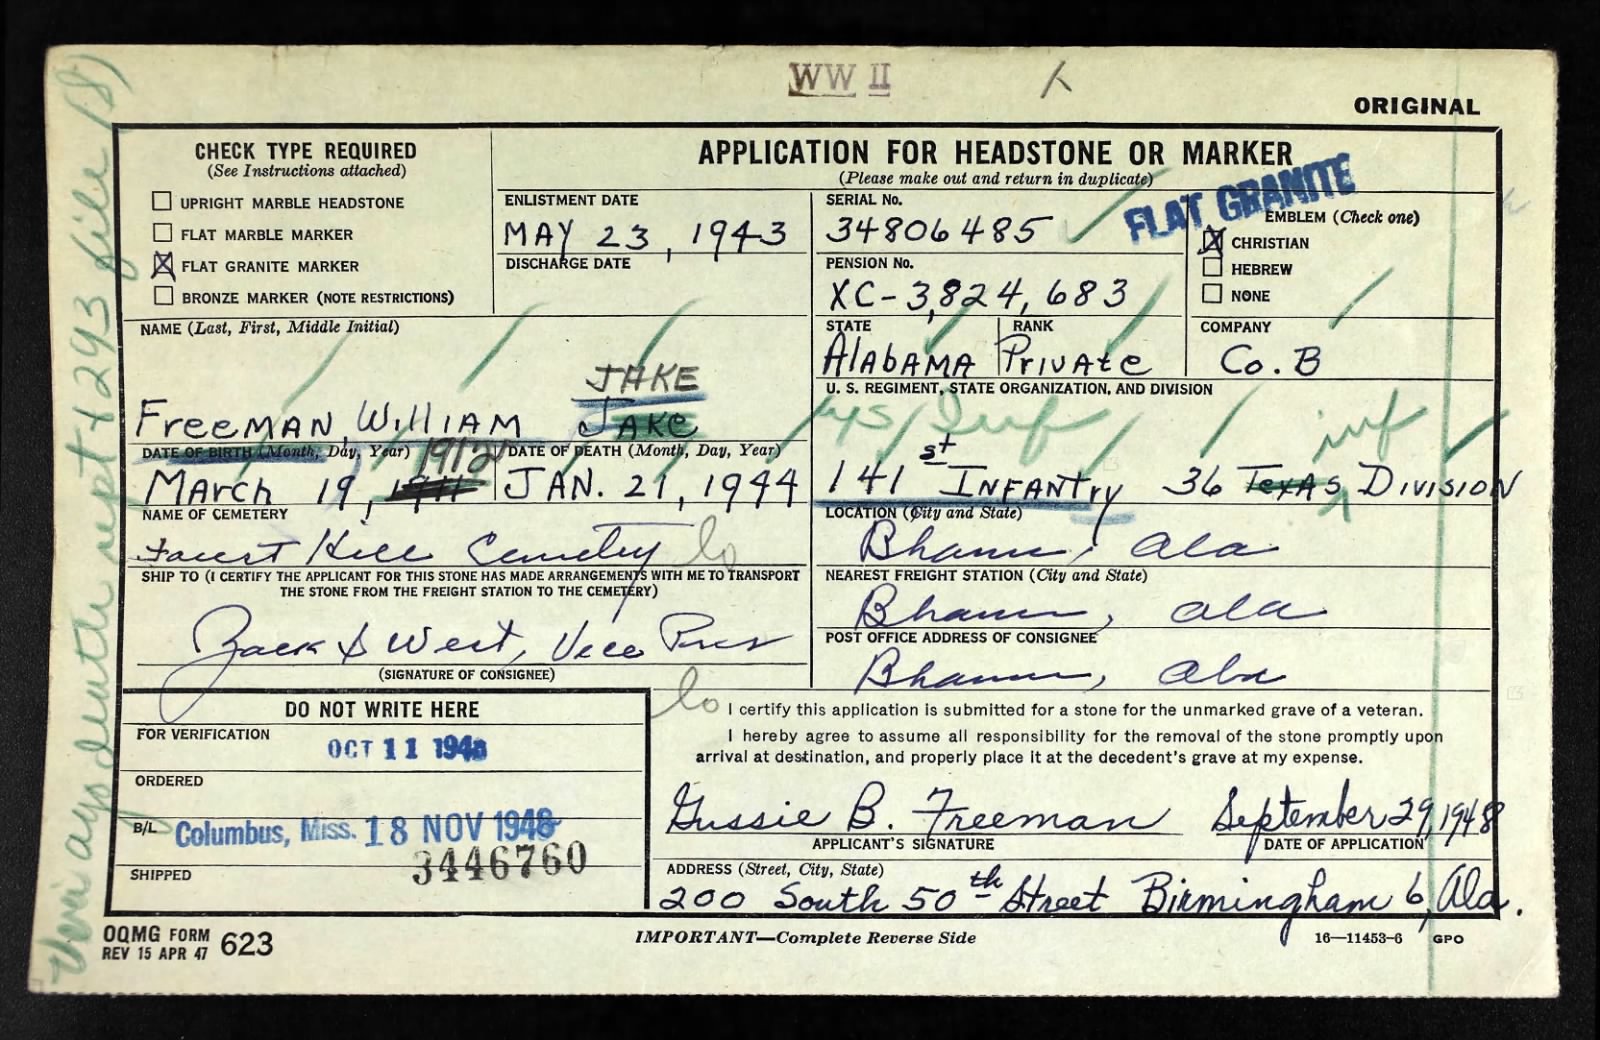 WW II
ORIGINAL
CHECK TYPE REQUIRED
(See Instructions attached)
UPRIGHT MARBLE HEADSTONE
FLAT MARBLE MARKER
FLAT GRANITE MARKER
BRONZE MARKER (NOTE RESTRICTIONS)
APPLICATION FOR HEADSTONE OR MARKER
(Please make out and return in duplicate)
FLAT GRANITE
ENLISTMENT DATE
MAY 23, 1943
DISCHARGE DATE
SERIAL No.
34806485
PENSION No.
XC-3,824,683
EMBLEM (Check one)
CHRISTIAN
HEBREW
NONE
NAME (Last, First, Middle Initial)
JAKE
Freeman, William Jake
STATE
Alabama
RANK
Private
COMPANY
Co. B
U. S. REGIMENT, STATE ORGANIZATION, AND DIVISION
Inf inf
141st Infantry 36 Texas Division
DATE OF BIRTH (Month, Day, Year)
March 19, 1911 1912
DATE OF DEATH (Month, Day, Year)
JAN. 21, 1944
NAME OF CEMETERY
Forest Hill Cemetery
LOCATION (City and State)
Bham, Ala
SHIP TO (I CERTIFY THE APPLICANT FOR THIS STONE HAS MADE ARRANGEMENTS WITH ME TO TRANSPORT
THE STONE FROM THE FREIGHT STATION TO THE CEMETERY)
Zack D West, Vice Pres
(SIGNATURE OF CONSIGNEE)
NEAREST FREIGHT STATION (City and State)
Bham, Ala
POST OFFICE ADDRESS OF CONSIGNEE
Bham, Ala
DO NOT WRITE HERE
FOR VERIFICATION
OCT 11 1948
ORDERED
B/L
Columbus, Miss. 18 NOV 1948
3446760
SHIPPED
I certify this application is submitted for a stone for the unmarked grave of a veteran.
I hereby agree to assume all responsibility for the removal of the stone promptly upon
arrival at destination, and properly place it at the decedent's grave at my expense.
Gussie B. Freeman September 29, 1948
APPLICANT'S SIGNATURE
DATE OF APPLICATION
ADDRESS (Street, City, State)
200 South 50th Street Birmingham 6, Ala.
OQMG FORM
REV 15 APR 47 623
IMPORTANT—Complete Reverse Side
16—11453-6 GPO
death rept &293 file